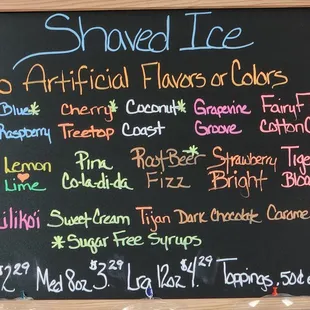 Shaved Ice
o Artificial Flavors or Colors
Blue* Cherry* Coconut* Grapevine FairyF
Raspberry Treetop Coast Groove CottonC
Lemon Pina Root Beer* Strawberry Tige
Lime Co-la-di-da Fizz Bright Bloo
Lilikoi Sweet Cream Tijan Dark Chocolate Carame
*Sugar Free Syrups
$2.29 Med 8oz $3.29 Lrg 12oz $4.29 Toppings .50¢ e